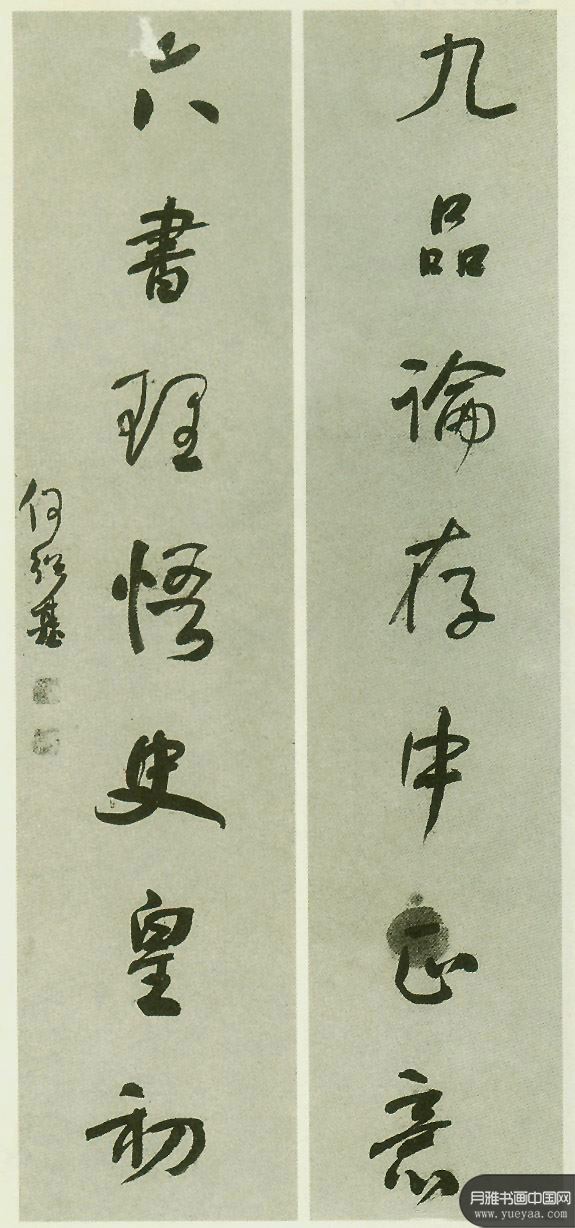 九品論存中正意
六書理悟史皇初
何紹基
月雅书画中国网
www.yueyaa.com